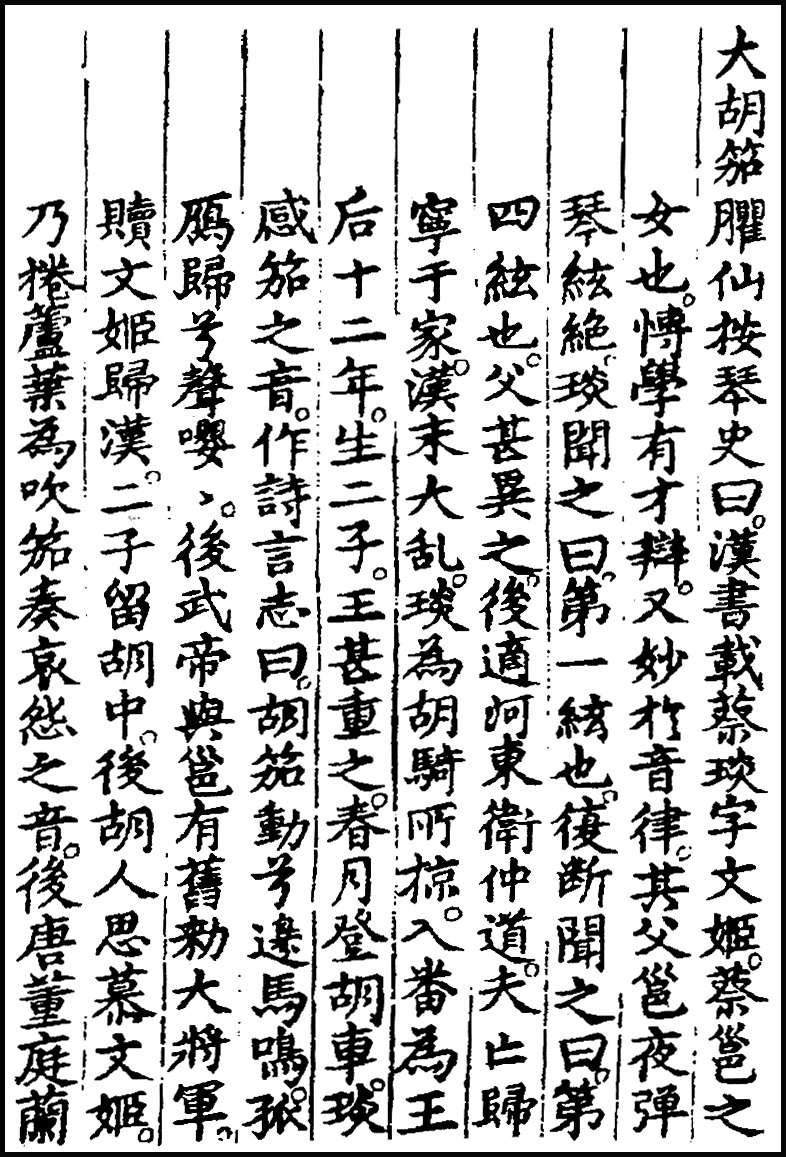 大胡笳臞仙按琴史曰。漢書載蔡琰字文姬。蔡邕之
女也。慱學有才辯。又妙於音律。其父邕夜弹
琴絃絶。琰聞之曰。第一絃也。復断聞之曰。第
四絃也。父甚異之。後適河東衛仲道。夫亡歸
寧于家。漢末大乱。琰為胡騎所掠。入番為王
后十二年。生二子。王甚重之。春月登胡車。琰
感笳之音。作詩言志曰。胡笳動兮邊馬鳴。孤
鴈歸兮聲嚶〻。後武帝與邕有舊勑大將軍。
贖文姬歸漢。二子留胡中。後胡人思慕文姬。
乃捲蘆葉為吹笳奏哀怨之音。後唐董庭蘭